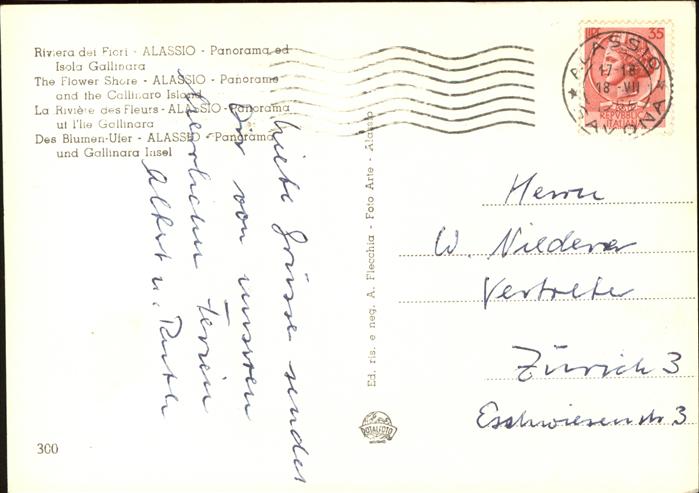 Riviera dei Fiori - ALASSIO - Panorama ed
Isola Gallinara
The Flower Shore - ALASSIO - Panorama
and the Gallinaro Island
La Rivière des Fleurs - ALASSIO - Panorama
ut l'Ile Gallinara
Des Blumen-Ufer - ALASSIO - Panorama
und Gallinara Insel
Liebe Grüsse sendet
Dir von unseren
herrlichen Ferien
Albert u.
Ed. ris. e neg. A. Flecchia - Foto Arte - Alassio
LIRE 35
REPVBBLICA
ITALIANA
ALASSIO
17-18
18 -VII
SAVONA
Herrn
W. Niederer
Vertreter
Zürich 3
Eschwiesenstr 3
ROTALFOTO
300